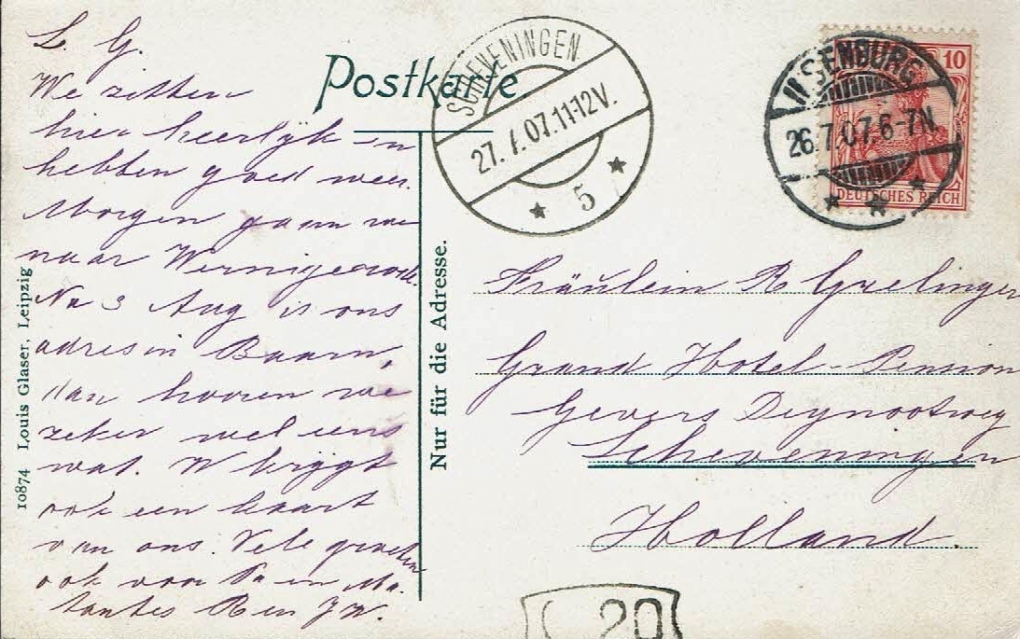 L. G.
We zitten
hier heerlijk en
hebben goed weer.
Morgen gaan we
naar Wernigerode.
Na 3 Aug is ons
adres in Baarn,
dan hooren we
zeker wel eens
wat. W krijgt
ook een kaart
van ons. Vele groeten
ook voor Pa en Ma.
tantes R en J W.
10874 Louis Glaser, Leipzig
Postkarte
Nur für die Adresse.
SCHEVENINGEN
27.7.07.11-12V.
5
ILSENBURG
26.7.07.6-7N.
10
DEUTSCHES REICH
Fräulein R
Grand Hotel-Pension
Gevers Deynootweg
Scheveningen
Holland.
20